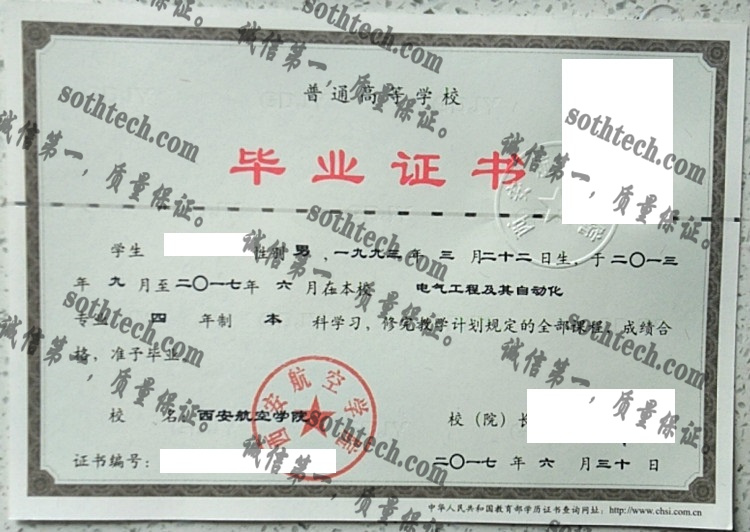 普通高等学校
毕业证书
学生 性别 男 ，一九九三年 三 月二十二日生，于二〇一三
年 九 月至二〇一七年 六 月在本校 电气工程及其自动化
专业 四 年制 本 科学习，修完教学计划规定的全部课程，成绩合
格，准予毕业
校 名：西安航空学院
校（院）长
证书编号：
二〇一七 年 六 月三十日
中华人民共和国教育部学历证书查询网址：http://www.chsi.com.cn
西安航空学院
sothtech.com
诚信第一，质量保证。
sothtech.com
诚信第一，质量保证。
sothtech.com
诚信第一，质量保证。
sothtech.com
诚信第一，质量保证。
sothtech.com
诚信第一，质量保证。
sothtech.com
诚信第一，质量保证。
sothtech.com
诚信第一，质量保证。